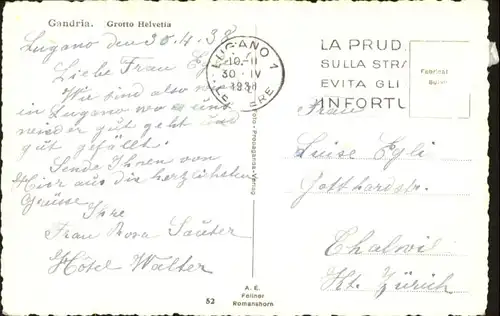 Gandria. Grotto Helvetia
Lugano den 30.4.38
Liebe Frau
Wir sind also
in Lugano wo uns
wieder gut geht und
gut gefällt.
Sende Ihnen von
Hier aus die herzlichsten
Grüsse
Ihre
Frau Rosa Sauter
Hôtel Walter
LUGANO 1
10-11
30 · IV
1938
LA PRUD
SULLA STRA
EVITA GLI
INFORTU
Frau
Luise Egli
Gotthardstr.
Thalwil
Kt. Zürich
Foto-Propaganda-Verlag
A. E.
Fellner
Romanshorn
52